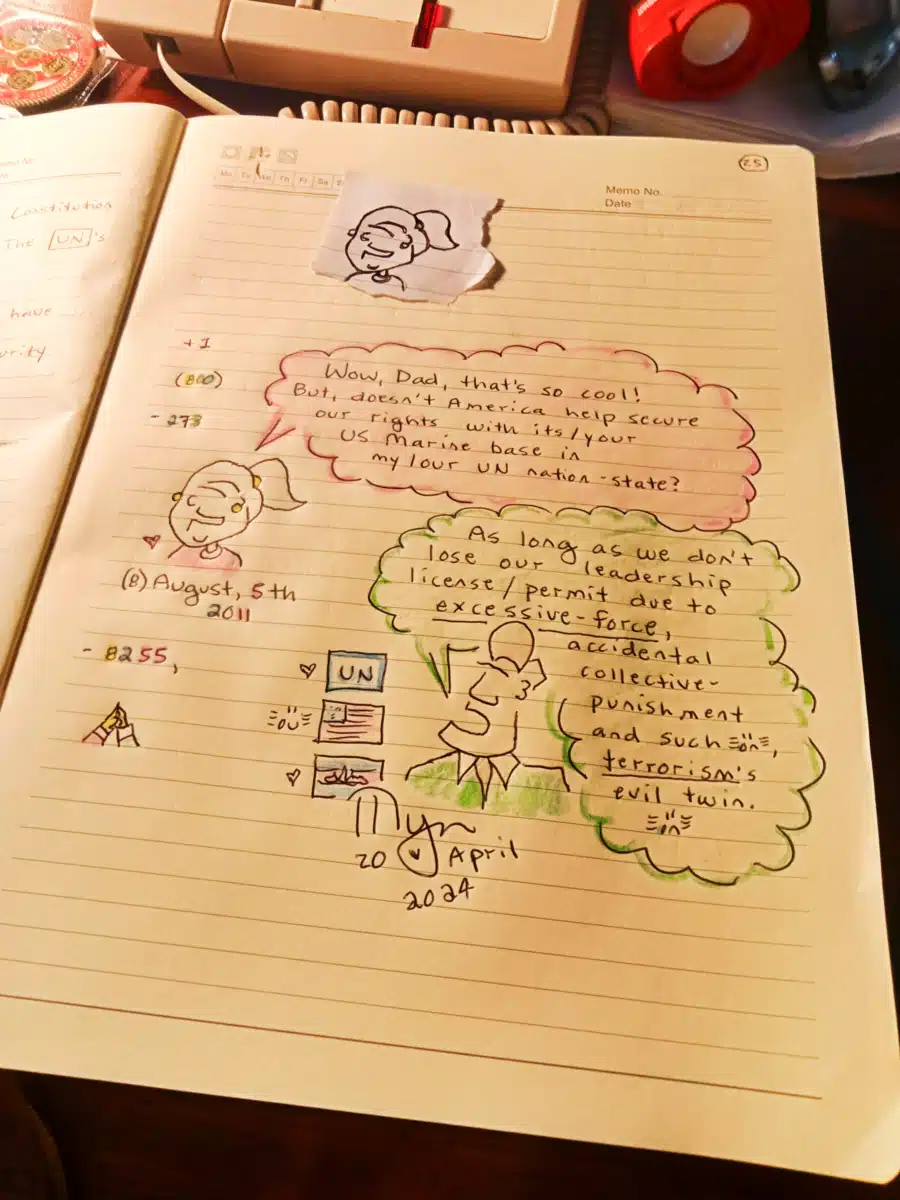 Memo No.
Constitution
The UN's
have
urity
Mo Tu We Th Fr Sa S
25
Memo No.
Date
+1
(800)
- 273
Wow, Dad, that's so cool!
But, doesn't America help secure
our rights with its/your
US Marine base in
my/our UN nation-state?
(B) August, 5th
2011
- 8255,
As long as we don't
lose our leadership
license/permit due to
excessive-force,
accidental
collective-
punishment
and such
terrorism's
evil twin.
UN
20 April
2024